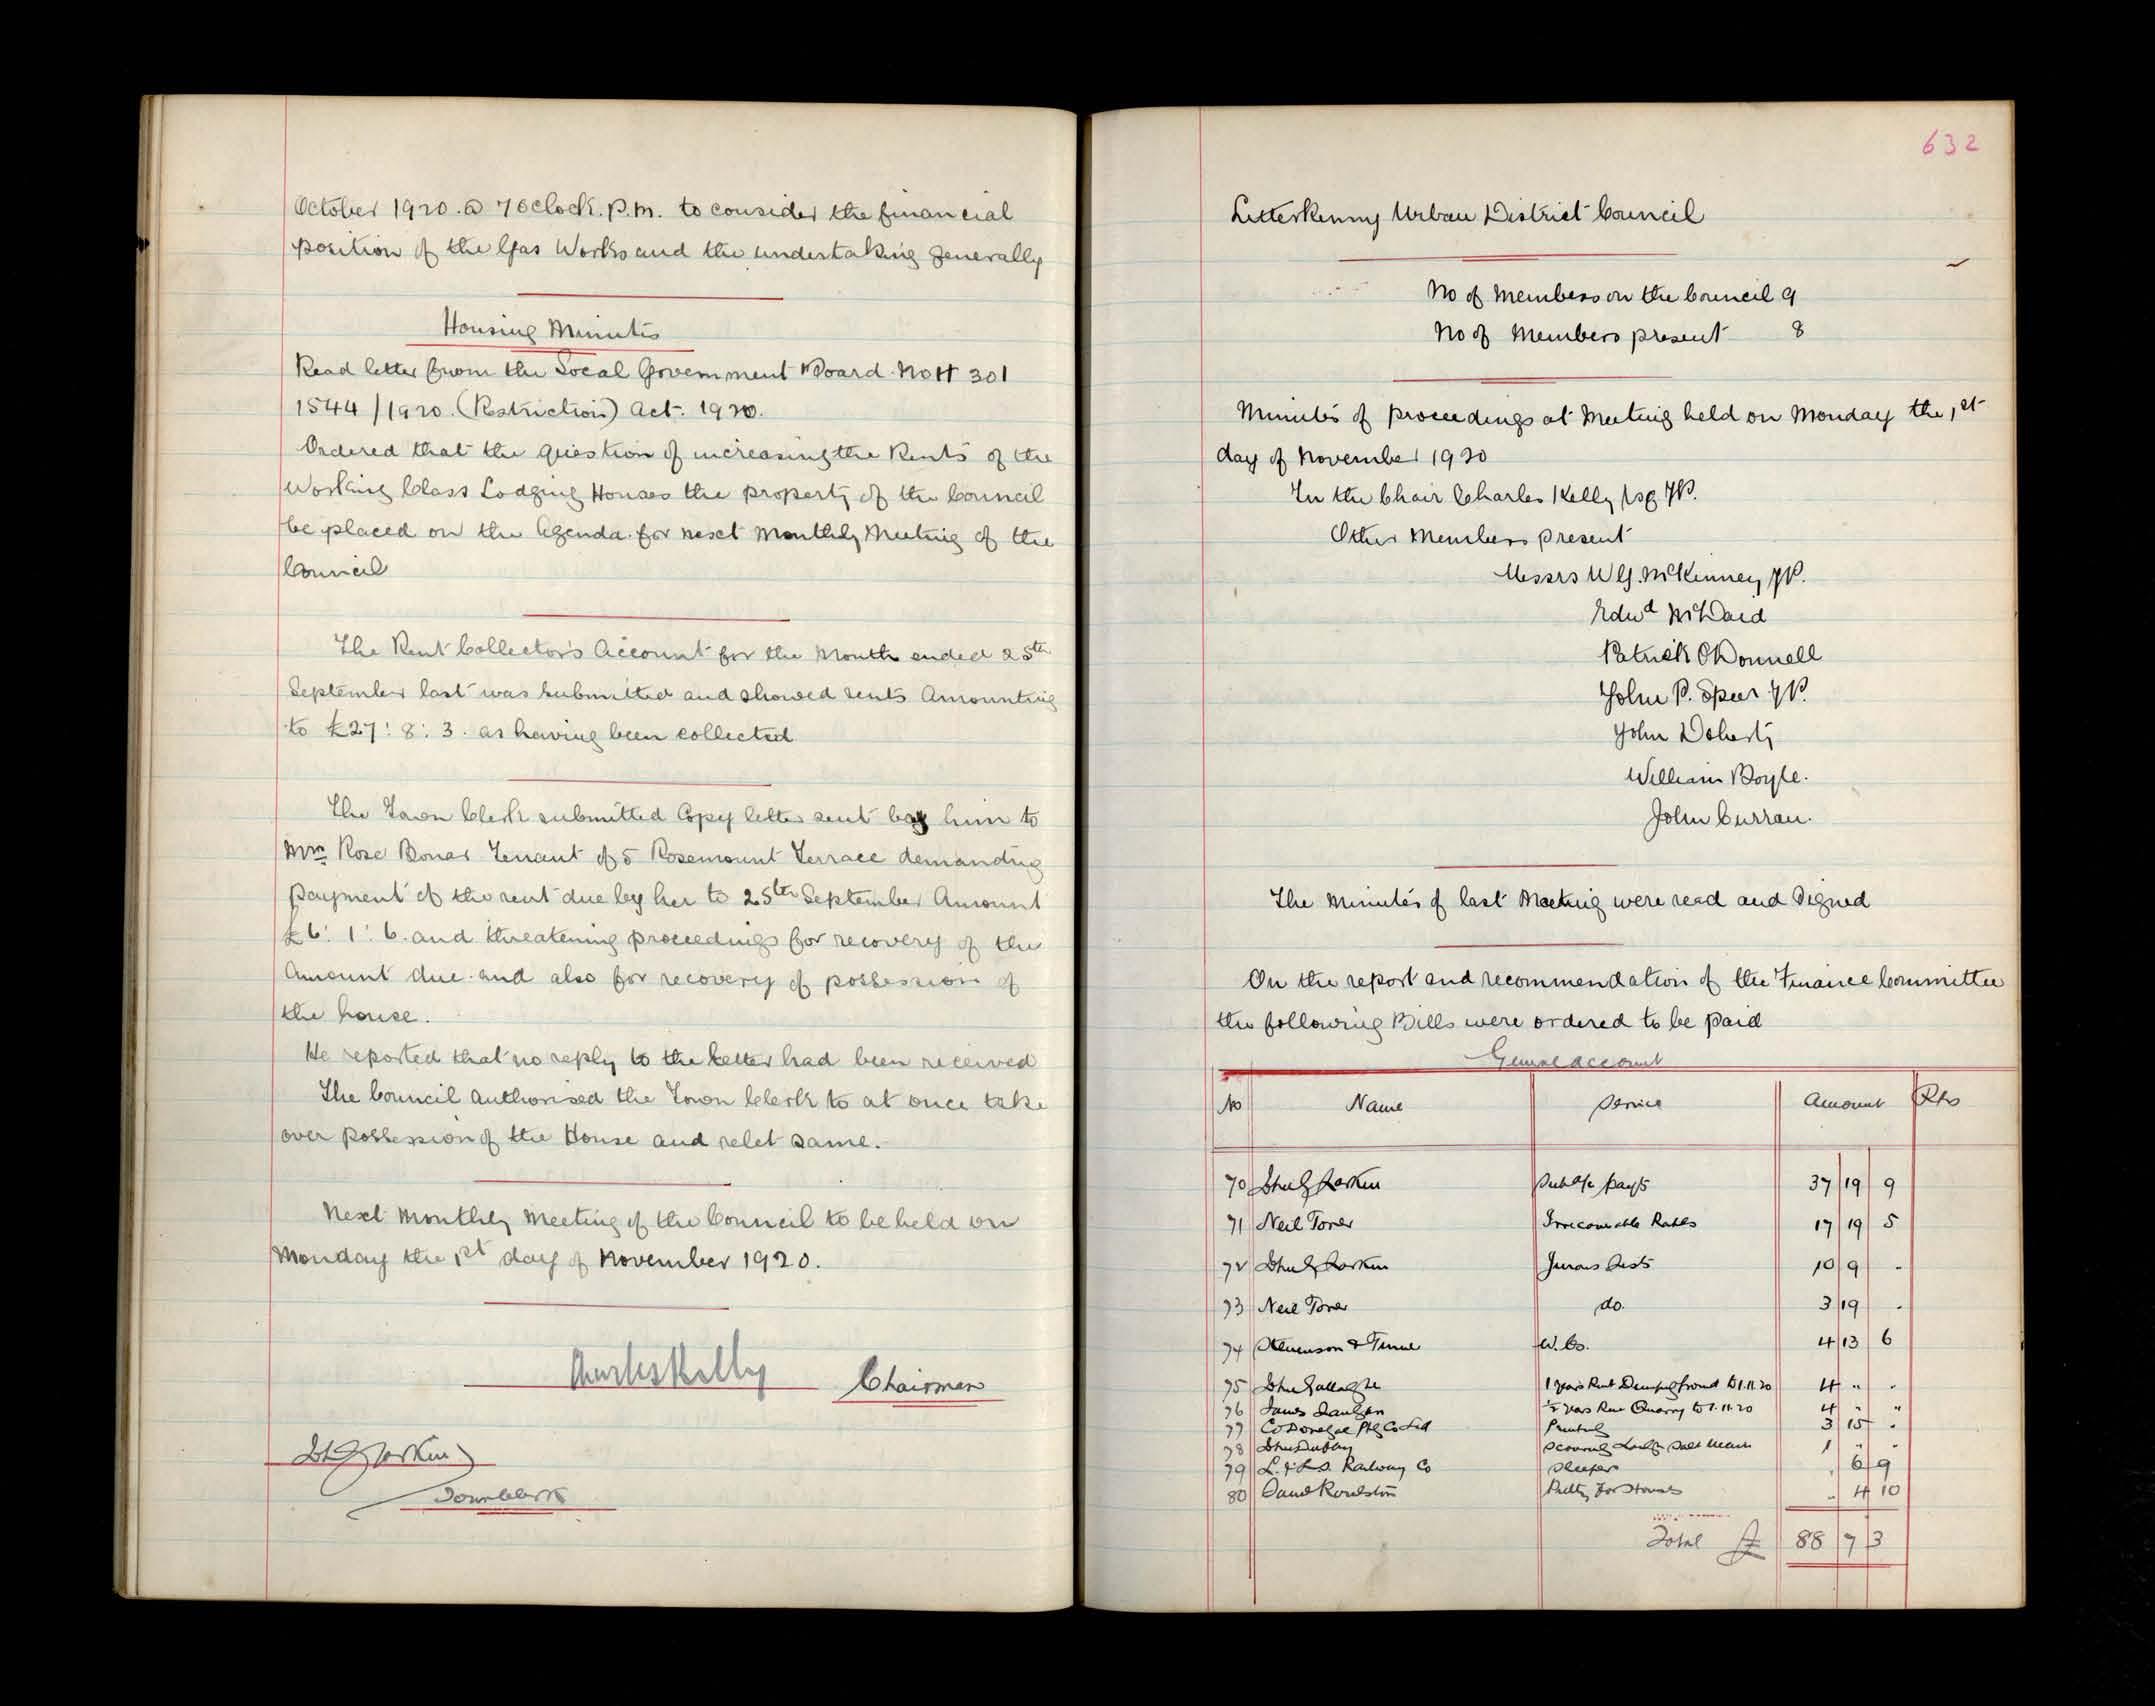 October 1920. @ 7 oClock. P.m. to consider the financial
position of the Gas Works and the undertaking generally
Housing Minutes
Read letter from the Local Government Board. No H 301
1544/1920. (Restriction) Act. 1920.
Ordered that the question of increasing the Rents of the
Working Class Lodging Houses the property of the Council
be placed on the Agenda for next Monthly Meeting of the
Council
The Rent Collector's Account for the Month ended 25th
September last was submitted and showed rents Amounting
to £27: 8: 3. as having been collected
The Town Clerk submitted Copy letter sent by him to
Mrs Rose Bonar Tenant of 5 Rosemount Terrace demanding
payment of the rent due by her to 25th September Amount
£6: 1: 6. and threatening proceedings for recovery of the
Amount due and also for recovery of possession of
the house.
He reported that no reply to the letter had been received
The Council authorised the Town Clerk to at once take
over possession of the House and relet same.
Next Monthly Meeting of the Council to be held on
Monday the 1st day of November 1920.
Charles Kelly Chairman
Town Clerk
632
Letterkenny Urban District Council
No of Members on the Council 9
No of Members present 8
Minutes of proceedings at Meeting held on Monday the 1st
day of November 1920
In the Chair Charles Kelly Esq JP.
Other Members present
Messrs W G. McKinney JP.
Edwd McDaid
Patrick ODonnell
John P. Speer JP.
John Doherty
William Boyle.
John Curran.
The Minutes of last Meeting were read and Signed
On the report and recommendation of the Finance Committee
the following Bills were ordered to be paid
General account
No Name Service Amount Rts
70 John G Larkin Public pay'ts 37 19 9
71 Neil Toner Irrecoverable Rates 17 19 5
72 John G Larkin Jurors Lists 10 9 -
73 Neil Toner do. 3 19 -
74 Stevenson & W. Co. 4 13 6
75 John Gallagher 1 years Rent ground to 1.11.20 4 " "
76 James ½ years Rent Quarry to 1.11.20 4 " "
77 Co Donegal Ptg Co Ltd Printing 3 15 -
78 John Scouring 1 " "
79 L. & L.S. Railway Co Sleepers " 6 9
80 David Roulston Putty for Houses " 4 10
Total £ 88 7 3